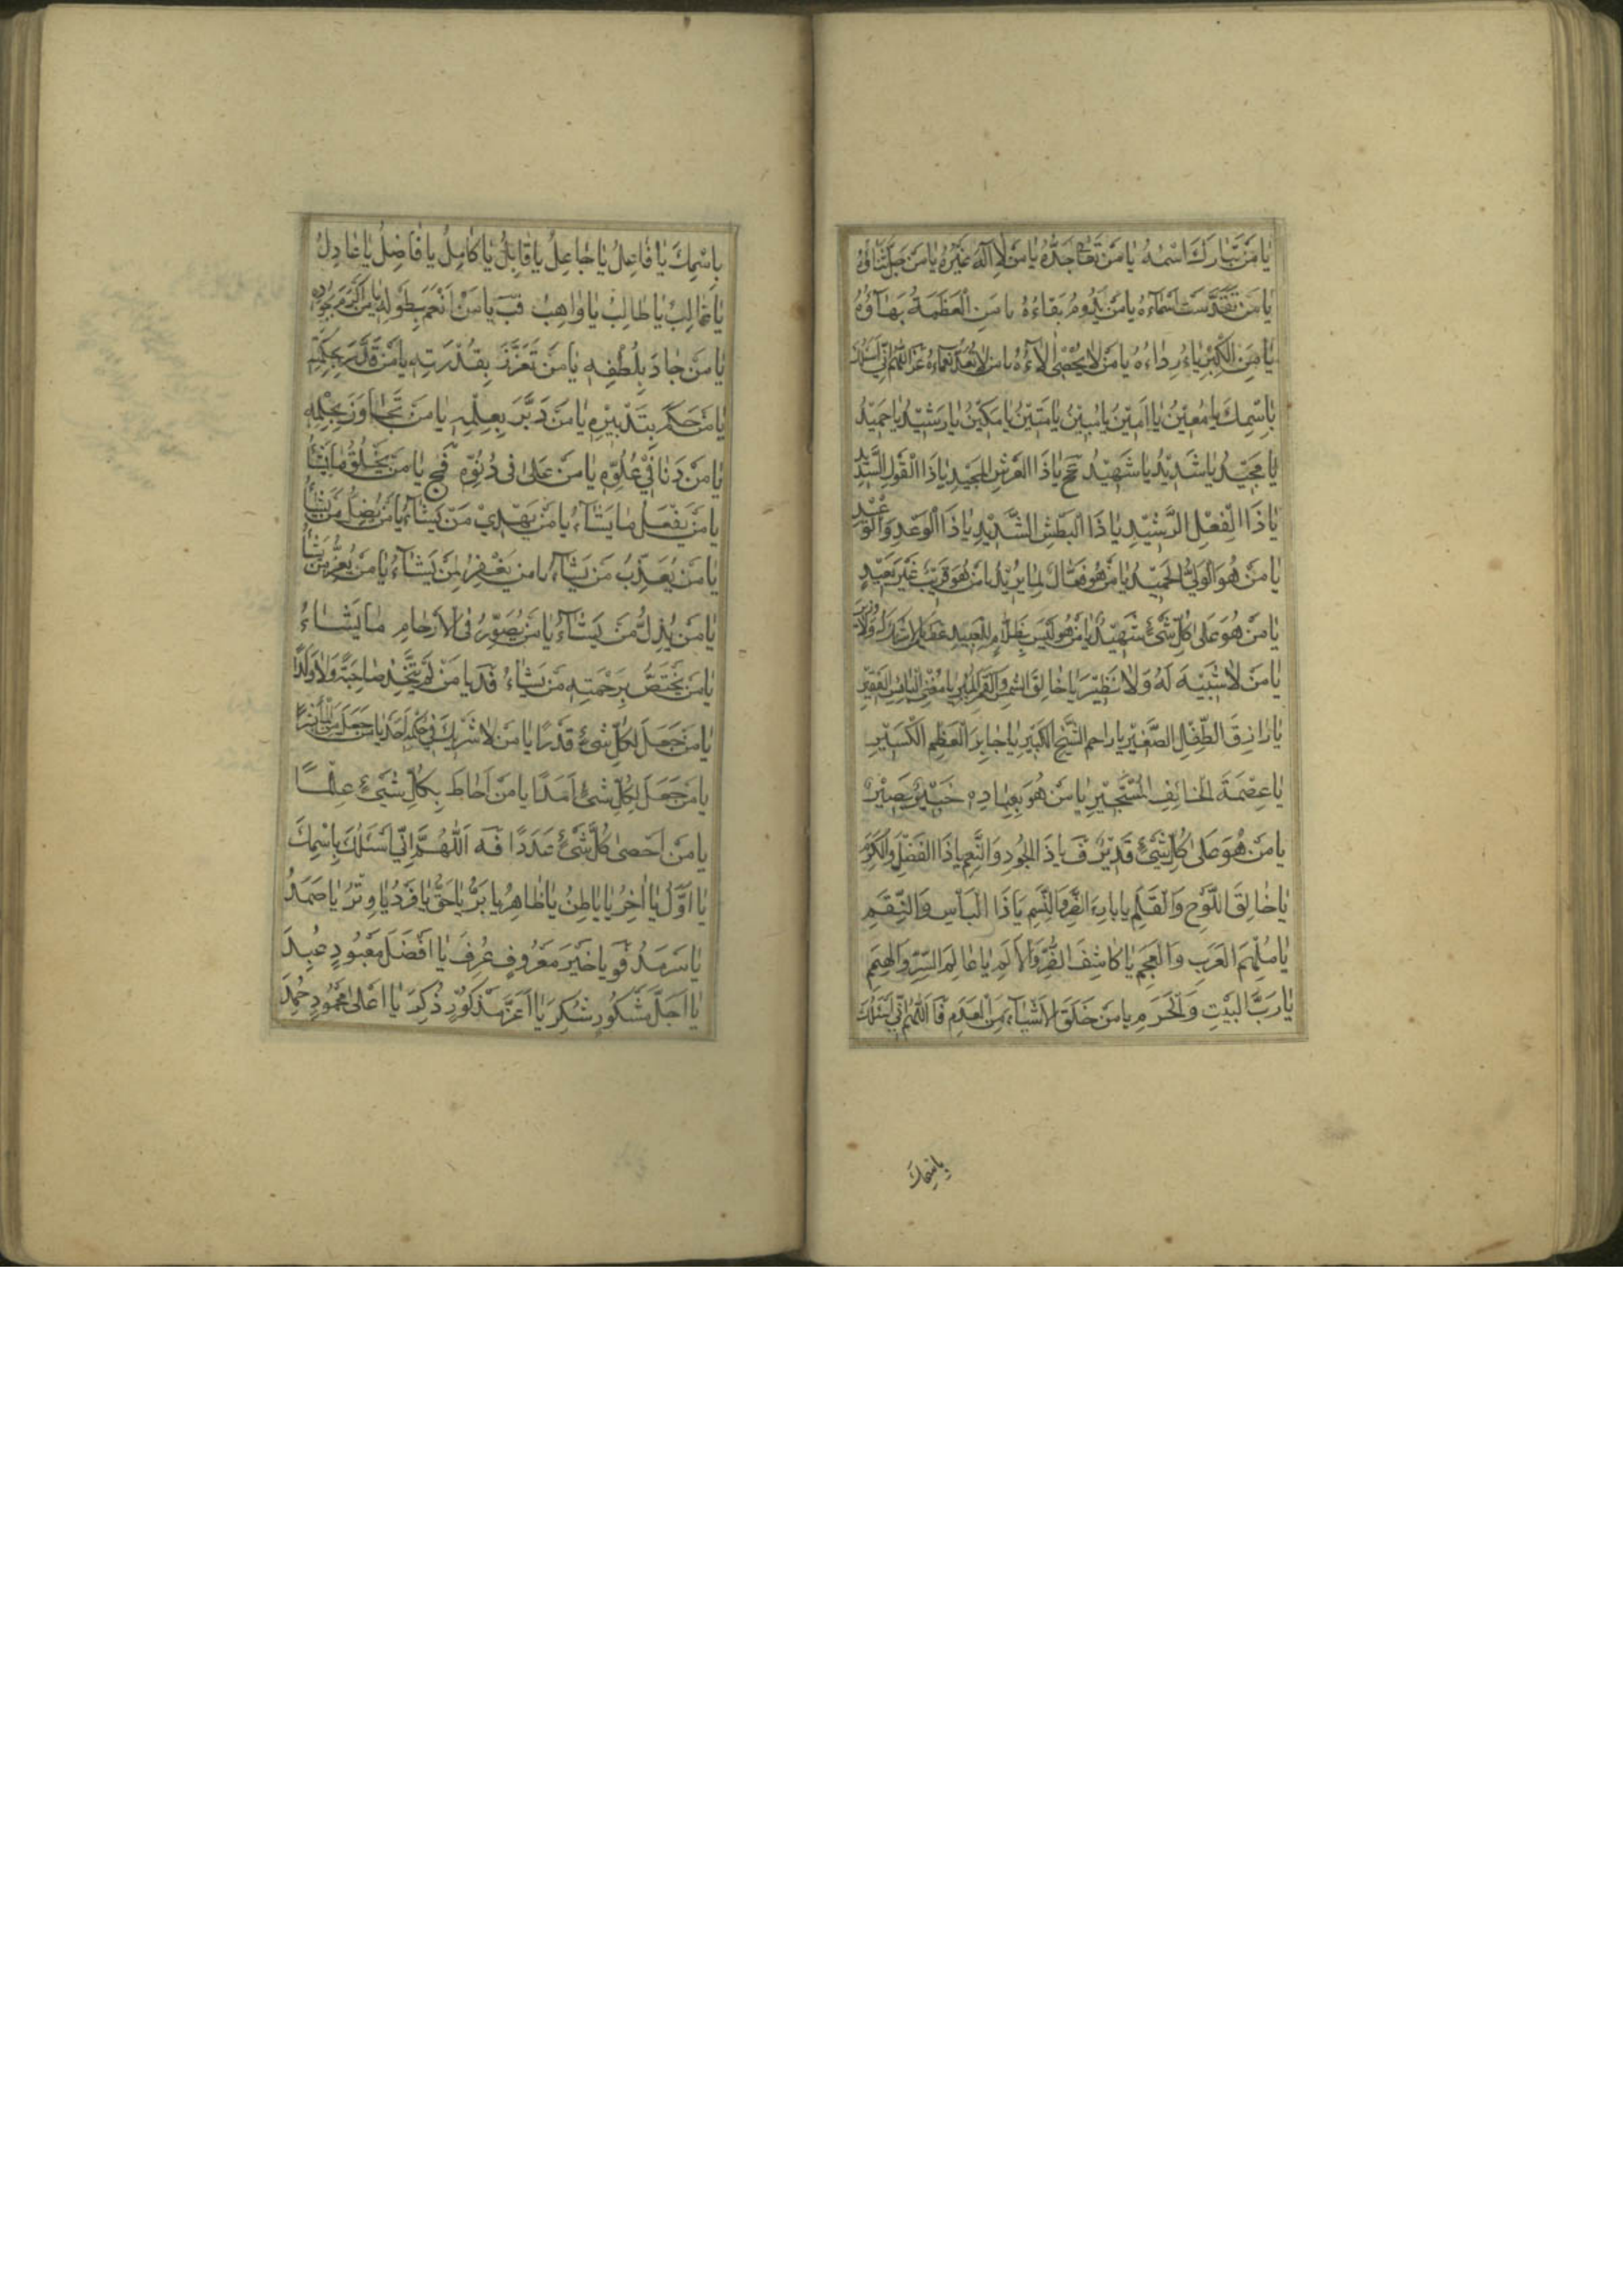 يا مَنْ تَبارَكَ اسْمُهُ يا مَنْ تَعالى جَدُّهُ يا مَنْ لا اِلهَ غَيْرُهُ يا مَنْ جَلَّ ثَناؤُهُ
يا مَنْ تَقَدَّسَتْ اَسْماءُهُ يا مَنْ يَدُومُ بَقاءُهُ يا مَنِ الْعَظَمَةُ بَهآؤُهُ
يا مَنِ الْكِبْرِياءُ رِداءُهُ يا مَنْ لا يُحْصى الاءُهُ يا مَنْ لا يُعَدُّ نَعْماءُهُ عز اَللّهُمَّ اِنّي اَسْئَلُكَ
بِاسْمِكَ يا مُعينُ يا اَمينُ يا مُبينُ يا مَتينُ يا مَكينُ يا رَشيدُ يا حَميدُ
يا مَجيدُ يا شَديدُ يا شَهيدُ عح يا ذَا الْعَرْشِ الْمَجيدِ يا ذَا الْقَوْلِ السَّديدِ
يا ذَا الْفِعْلِ الرَّشيدِ يا ذَا الْبَطْشِ الشَّديدِ يا ذَا الْوَعْدِ وَالْوَعيدِ
يا مَنْ هُوَ الْوَلِيُّ الْحَميدُ يا مَنْ هُوَ فَعّالٌ لِما يُريدُ يا مَنْ هُوَ قَريبٌ غَيْرُ بَعيدٍ
يا مَنْ هُوَ عَلى كُلِّ شَيْءٍ شَهيدٌ يا مَنْ هُوَ لَيْسَ بِظَلّامٍ لِلْعَبيدِ عط يا مَنْ لا شَريكَ لَهُ وَلا وَزيرَ
يا مَنْ لا شَبيهَ لَهُ وَلا نَظيرَ يا خالِقَ الشَّمْسِ وَالْقَمَرِ الْمُنيرِ يا مُغْنِيَ الْبائِسِ الْفَقيرِ
يا رازِقَ الطِّفْلِ الصَّغيرِ يا راحِمَ الشَّيْخِ الْكَبيرِ يا جابِرَ الْعَظْمِ الْكَسيرِ
يا عِصْمَةَ الْخائِفِ الْمُسْتَجيرِ يا مَنْ هُوَ بِعِبادِهِ خَبيرٌ بَصيرٌ
يا مَنْ هُوَ عَلى كُلِّ شَيْءٍ قَديرٌ ف يا ذَا الْجُودِ وَالنِّعَمِ يا ذَا الْفَضْلِ وَالْكَرَمِ
يا خالِقَ اللَّوْحِ وَالْقَلَمِ يا بارِءَ الذَّرِّ وَالنَّسَمِ يا ذَا الْبَأْسِ وَالنِّقَمِ
يا مُلْهِمَ الْعَرَبِ وَالْعَجَمِ يا كاشِفَ الضُّرِّ وَالْاَلَمِ يا عالِمَ السِّرِّ وَالْهِمَمِ
يا رَبَّ الْبَيْتِ وَالْحَرَمِ يا مَنْ خَلَقَ الْاَشْياءَ مِنَ الْعَدَمِ فا اَللّهُمَّ اِنّي اَسْئَلُكَ
بِاسْمِكَ
بِاسْمِكَ يا فاعِلُ يا جاعِلُ يا قابِلُ يا كامِلُ يا فاضِلُ يا عادِلُ
يا غالِبُ يا طالِبُ يا واهِبُ فب يا مَنْ اَنْعَمَ بِطَوْلِهِ يا مَنْ اَكْرَمَ بِجُودِهِ
يا مَنْ جادَ بِلُطْفِهِ يا مَنْ تَعَزَّزَ بِقُدْرَتِهِ يا مَنْ قَدَّرَ بِحِكْمَتِهِ
يا مَنْ حَكَمَ بِتَدْبيرِهِ يا مَنْ دَبَّرَ بِعِلْمِهِ يا مَنْ تَجاوَزَ بِحِلْمِهِ
يا مَنْ دَنا في عُلُوِّهِ يا مَنْ عَلى في دُنُوِّهِ فج يا مَنْ يَخْلُقُ ما يَشاءُ
يا مَنْ يَفْعَلُ ما يَشآءُ يا مَنْ يَهْدي مَنْ يَشآءُ يا مَنْ يُضِلُّ مَنْ يَشاءُ
يا مَنْ يُعَذِّبُ مَنْ يَشآءُ يا مَنْ يَغْفِرُ لِمَنْ يَشآءُ يا مَنْ يُعِزُّ مَنْ يَشاءُ
يا مَنْ يُذِلُّ مَنْ يَشآءُ يا مَنْ يُصَوِّرُ فى الْاَرْحامِ ما يَشاءُ
يا مَنْ يَخْتَصُّ بِرَحْمَتِهِ مَنْ يَشاءُ فد يا مَنْ لَمْ يَتَّخِذْ صاحِبَةً وَلا وَلَدًا
يا مَنْ جَعَلَ لِكُلِّ شَيْءٍ قَدْرًا يا مَنْ لا شَريكَ في حُكْمِهِ اَحَدٌ يا مَنْ جَعَلَ مِنَ الْمآءِ بَشَرًا
يا مَنْ جَعَلَ لِكُلِّ شَيْءٍ اَمَدًا يا مَنْ اَحاطَ بِكُلِّ شَيْءٍ عِلْمًا
يا مَنْ اَحْصى كُلَّ شَيْءٍ عَدَدًا فه اَللّهُمَّ اِنّي اَسْئَلُكَ بِاسْمِكَ
يا اَوَّلُ يا اخِرُ يا باطِنُ يا ظاهِرُ يا بَرُّ يا حَقُّ يا فَرْدُ يا وِتْرُ يا صَمَدُ
يا سَرْمَدُ فو يا خَيْرَ مَعْرُوفٍ عُرِفَ يا اَفْضَلَ مَعْبُودٍ عُبِدَ
يا اَجَلَّ مَشْكُورٍ شُكِرَ يا اَعَزَّ مَذْكُورٍ ذُكِرَ يا اَعْلى مَحْمُودٍ حُمِدَ